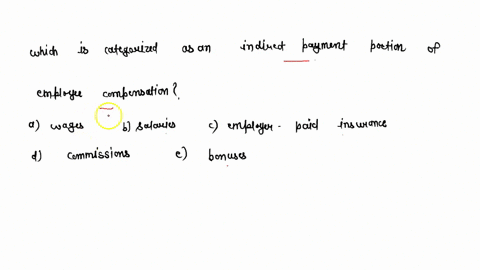 which is categorized as an indirect payment portion of
employee compensation?
a) wages b) salaries c) employer- paid insurance
d) commissions e) bonuses